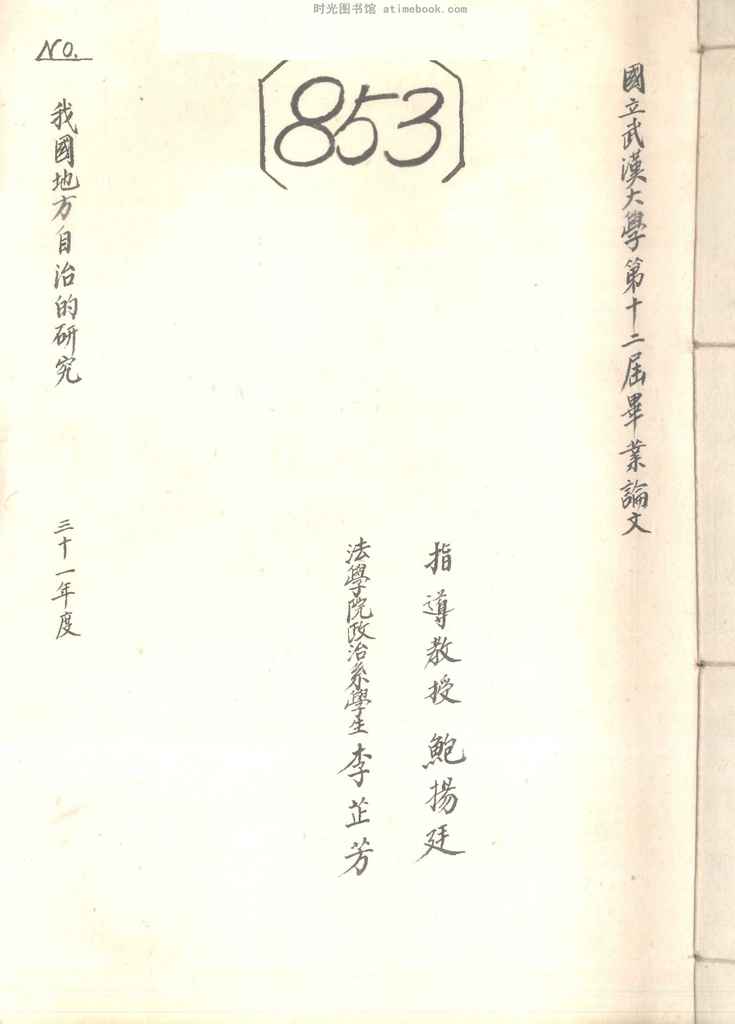 时光图书馆 atimebook.com
NO.
〔853〕
國立武漢大學第十二屆畢業論文
指導教授 鮑揚廷
法學院政治系學生 李芷芳
我國地方自治的研究
三十一年度